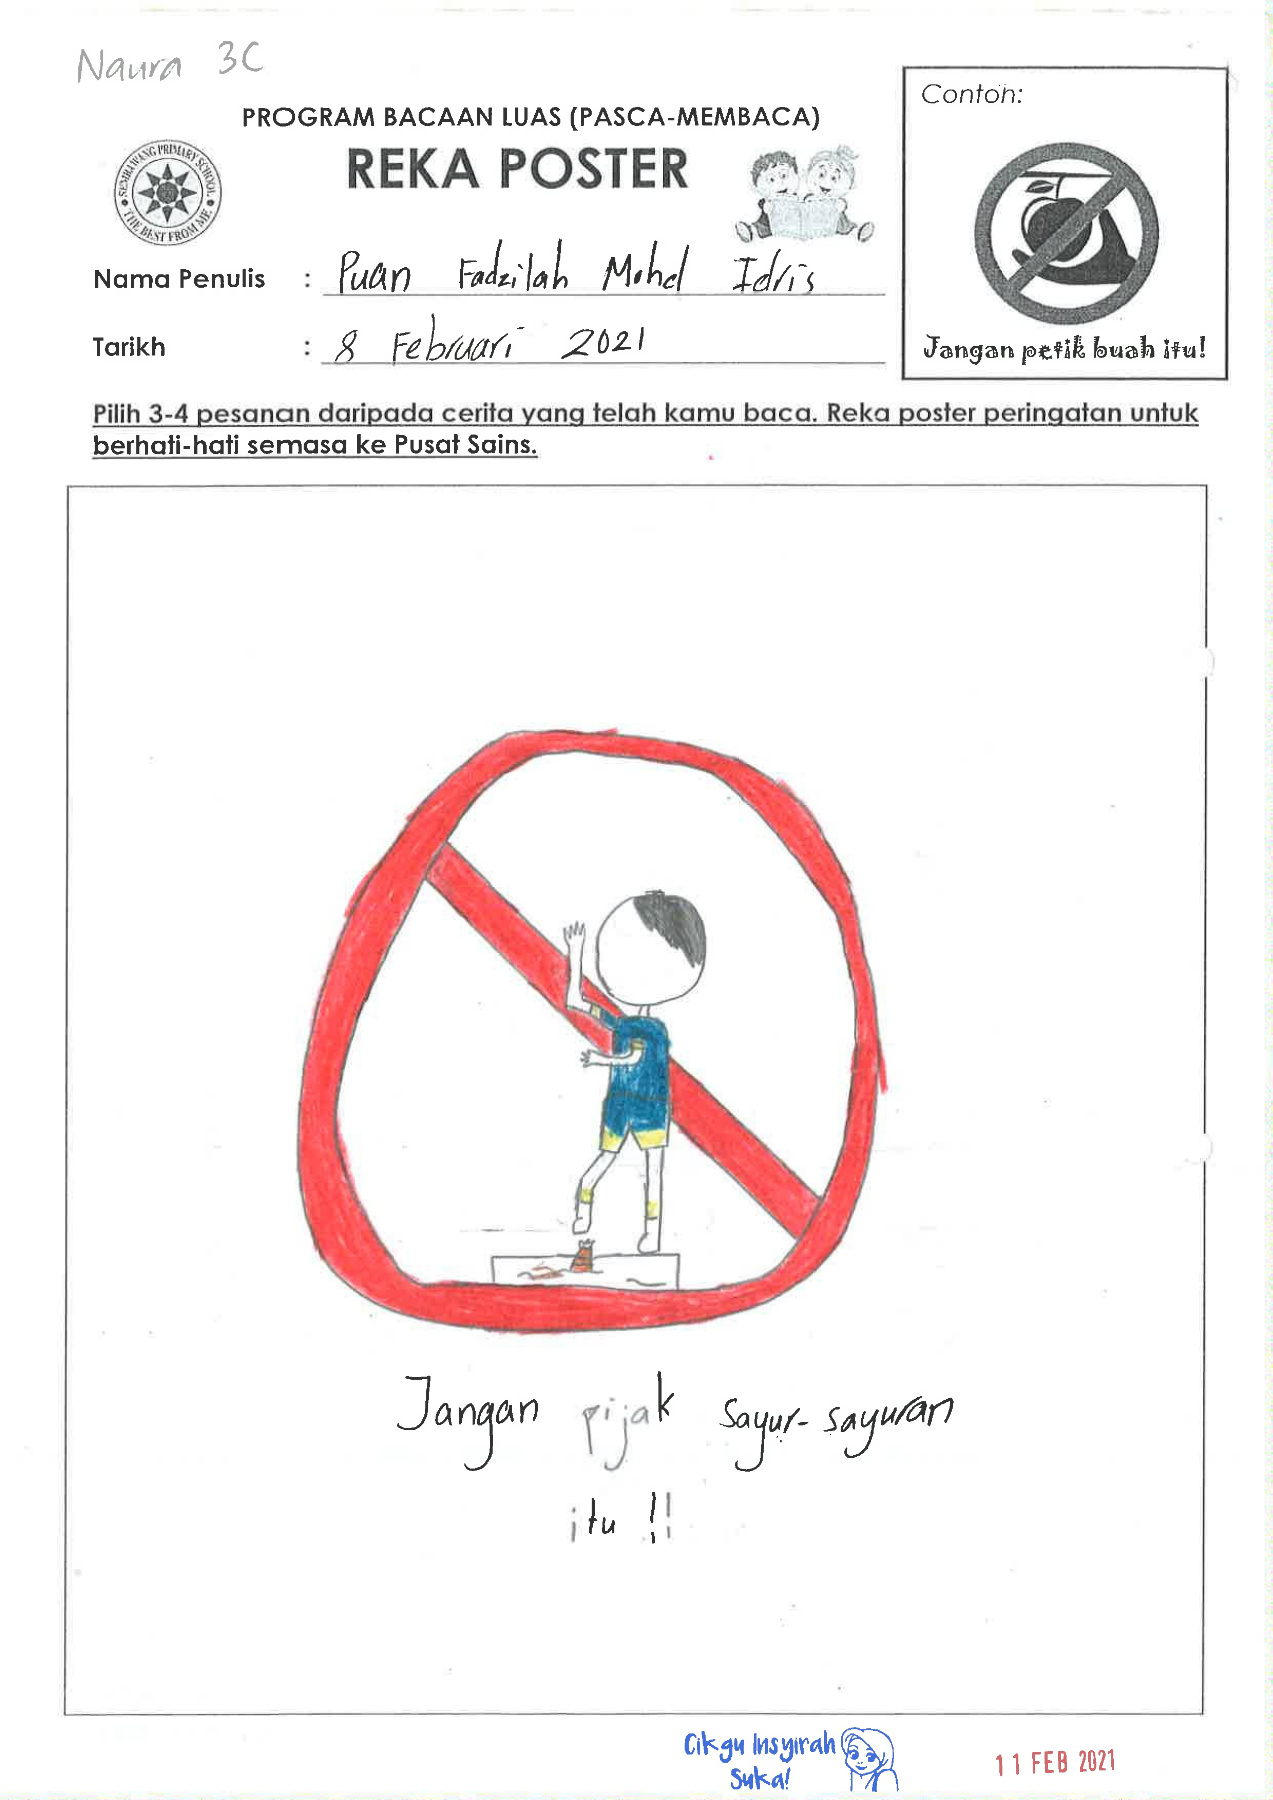 Naura 3C
Contoh:
PROGRAM BACAAN LUAS (PASCA-MEMBACA)
REKA POSTER
SEMBAWANG PRIMARY SCHOOL
THE BEST FROM ME
Nama Penulis : Puan Fadzilah Mohd Idris
Tarikh : 8 Februari 2021
Jangan petik buah itu!
Pilih 3-4 pesanan daripada cerita yang telah kamu baca. Reka poster peringatan untuk
berhati-hati semasa ke Pusat Sains.
Jangan pijak sayur-sayuran
itu !!
Cikgu Insyirah
Suka!
11 FEB 2021